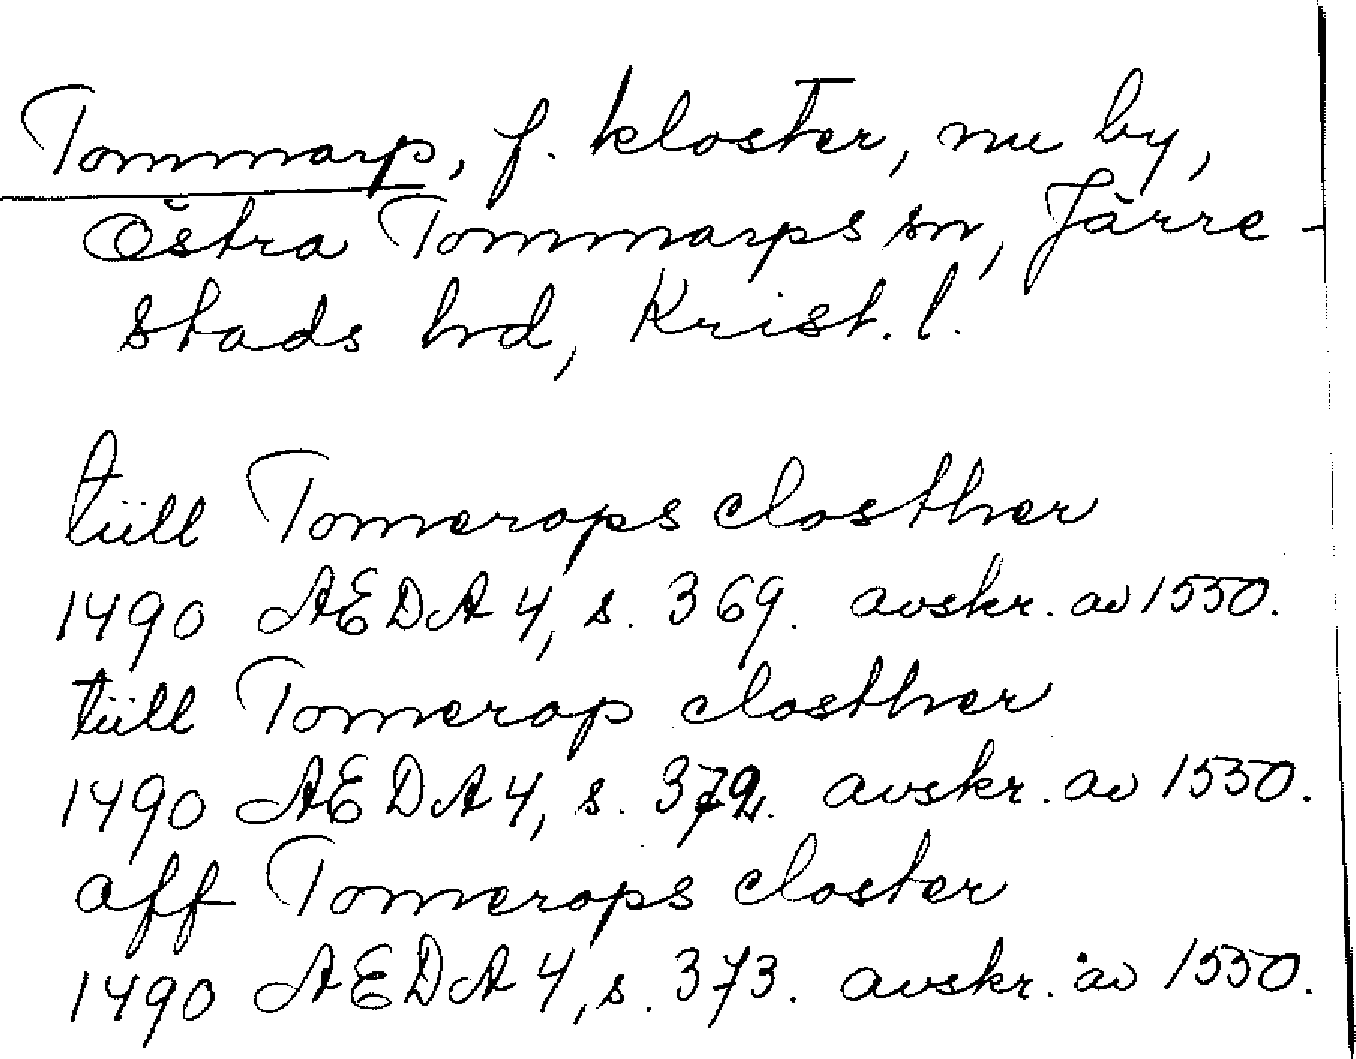 Tommarp, f. kloster, nu by,
Östra Tommarps sn, Järre-
stads hd, Krist. l.
tiill Tomerops closther
1490 AEDA 4, s. 369. avskr. av 1550.
tiill Tomerop closther
1490 AEDA 4, s. 372. avskr. av 1550.
aff Tomerops closter
1490 AEDA 4, s. 373. avskr. av 1550.